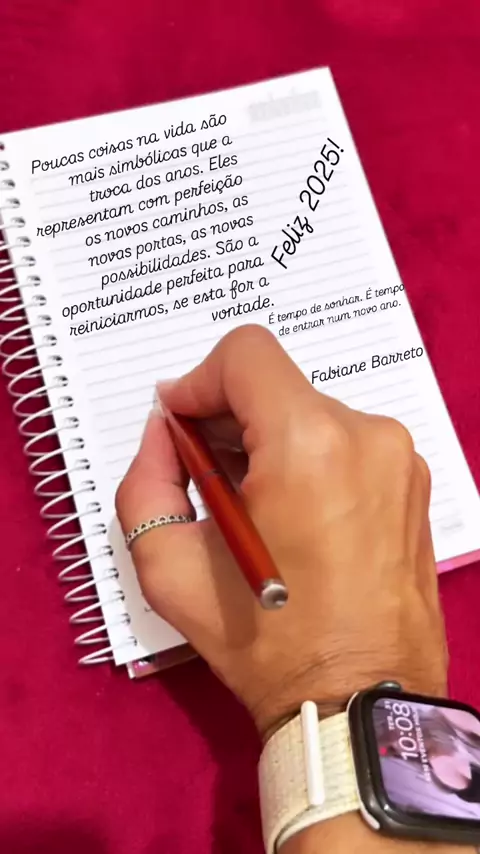 Poucas coisas na vida são
mais simbólicas que a
troca dos anos. Eles
representam com perfeição
os novos caminhos, as
novas portas, as novas
possibilidades. São a
oportunidade perfeita para
reiniciarmos, se esta for a
vontade.
Feliz 2025!
É tempo de sonhar. É tempo
de entrar num novo ano.
Fabiane Barreto
TER. 31
10:08
SEM EVENTOS HOJE